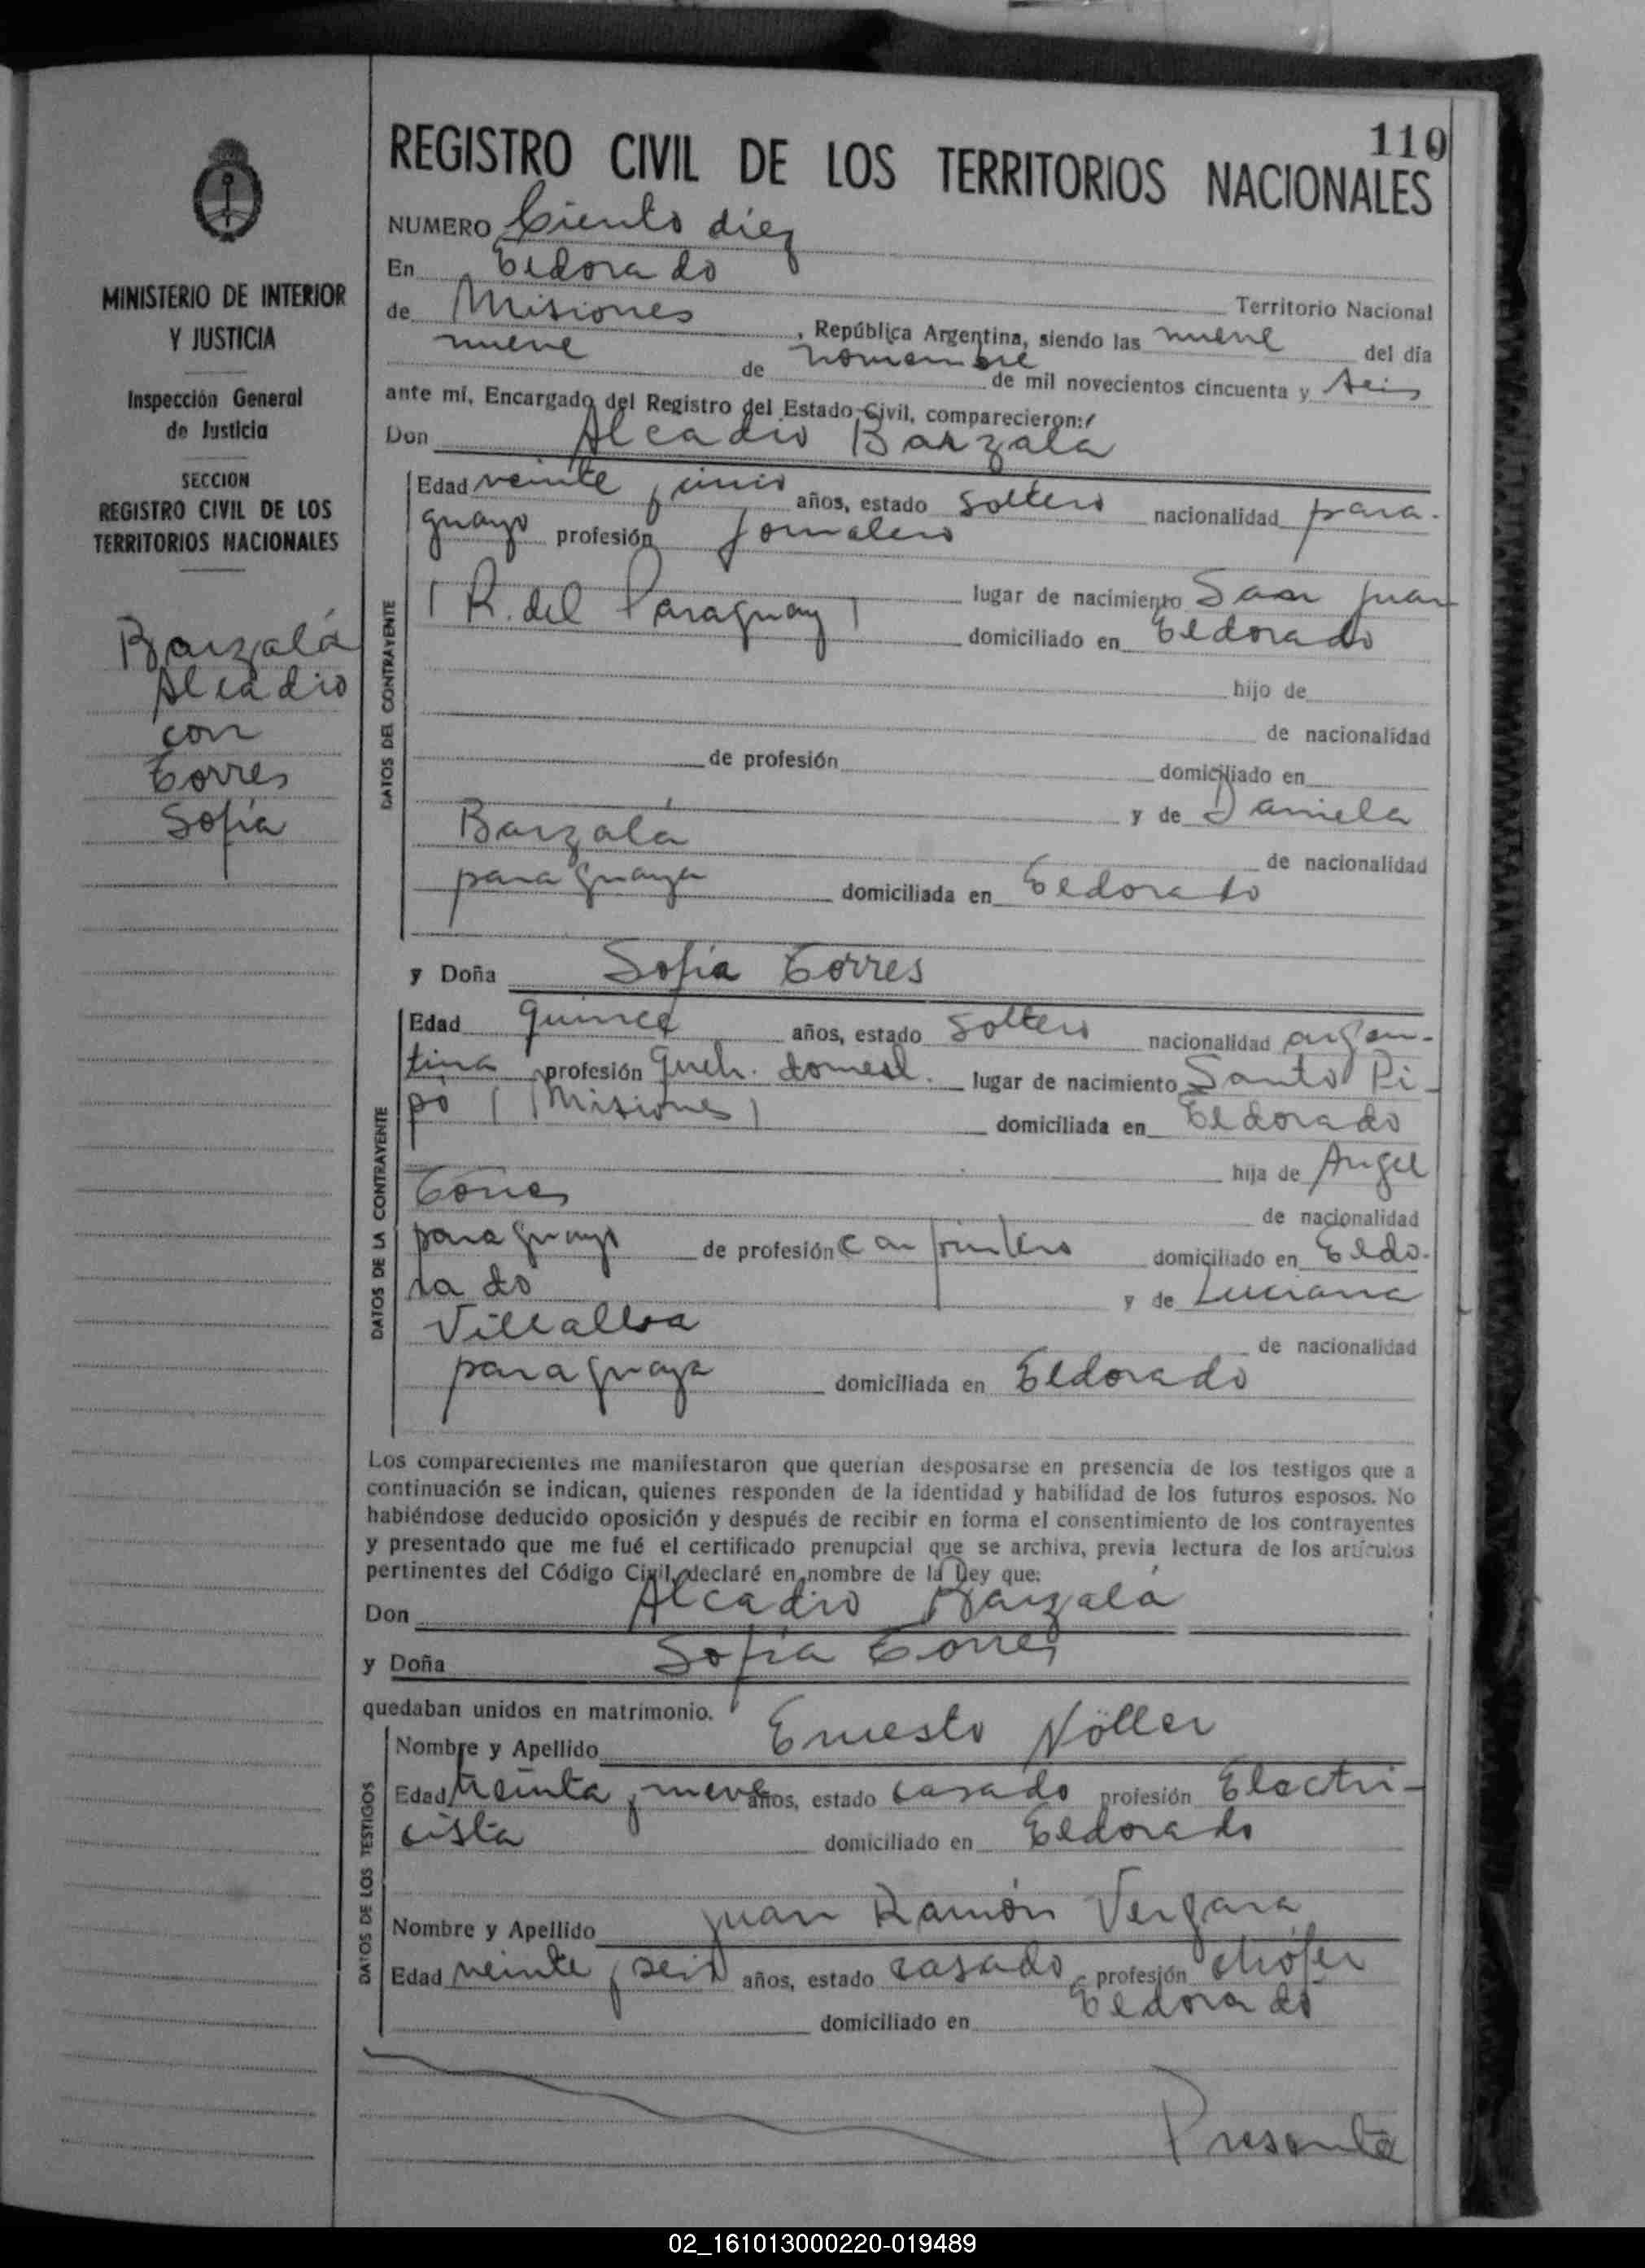 110
REGISTRO CIVIL DE LOS TERRITORIOS NACIONALES
NUMERO Ciento diez
En Eldorado
Territorio Nacional
de Misiones, República Argentina, siendo las nueve del día
nueve de noviembre de mil novecientos cincuenta y seis
ante mí, Encargado del Registro del Estado Civil, comparecieron:
Don Alcadio Barzala
DATOS DEL CONTRAYENTE
Edad veinte y cinco años, estado soltero nacionalidad para-
guayo profesión Jornalero
lugar de nacimiento San Juan
(R. del Paraguay) domiciliado en Eldorado
hijo de
de nacionalidad
de profesión domiciliado en
y de Daniela
Barzalá
de nacionalidad
paraguaya domiciliada en Eldorado
y Doña Sofía Torres
DATOS DE LA CONTRAYENTE
Edad quince años, estado soltera nacionalidad argen-
tina profesión Queh. domést. lugar de nacimiento Santo Pi-
pó (Misiones) domiciliada en Eldorado
hija de Angel
Torres
de nacionalidad
paraguayo de profesión carpintero domiciliado en Eldo-
rado y de Luciana
Villalba
de nacionalidad
paraguaya domiciliada en Eldorado
Los comparecientes me manifestaron que querían desposarse en presencia de los testigos que a
continuación se indican, quienes responden de la identidad y habilidad de los futuros esposos. No
habiéndose deducido oposición y después de recibir en forma el consentimiento de los contrayentes
y presentado que me fué el certificado prenupcial que se archiva, previa lectura de los artículos
pertinentes del Código Civil, declaré en nombre de la Ley que:
Don Alcadio Barzalá
y Doña Sofía Torres
quedaban unidos en matrimonio.
DATOS DE LOS TESTIGOS
Nombre y Apellido Ernesto Nöller
Edad treinta y nueve años, estado casado profesión Electri-
cista domiciliado en Eldorado
Nombre y Apellido Juan Ramón Vergara
Edad veinte y seis años, estado casado profesión chófer
domiciliado en Eldorado
Presente
MINISTERIO DE INTERIOR
Y JUSTICIA
Inspección General
de Justicia
SECCION
REGISTRO CIVIL DE LOS
TERRITORIOS NACIONALES
Barzalá
Alcadio
con
Torres
Sofía
02_161013000220-019489